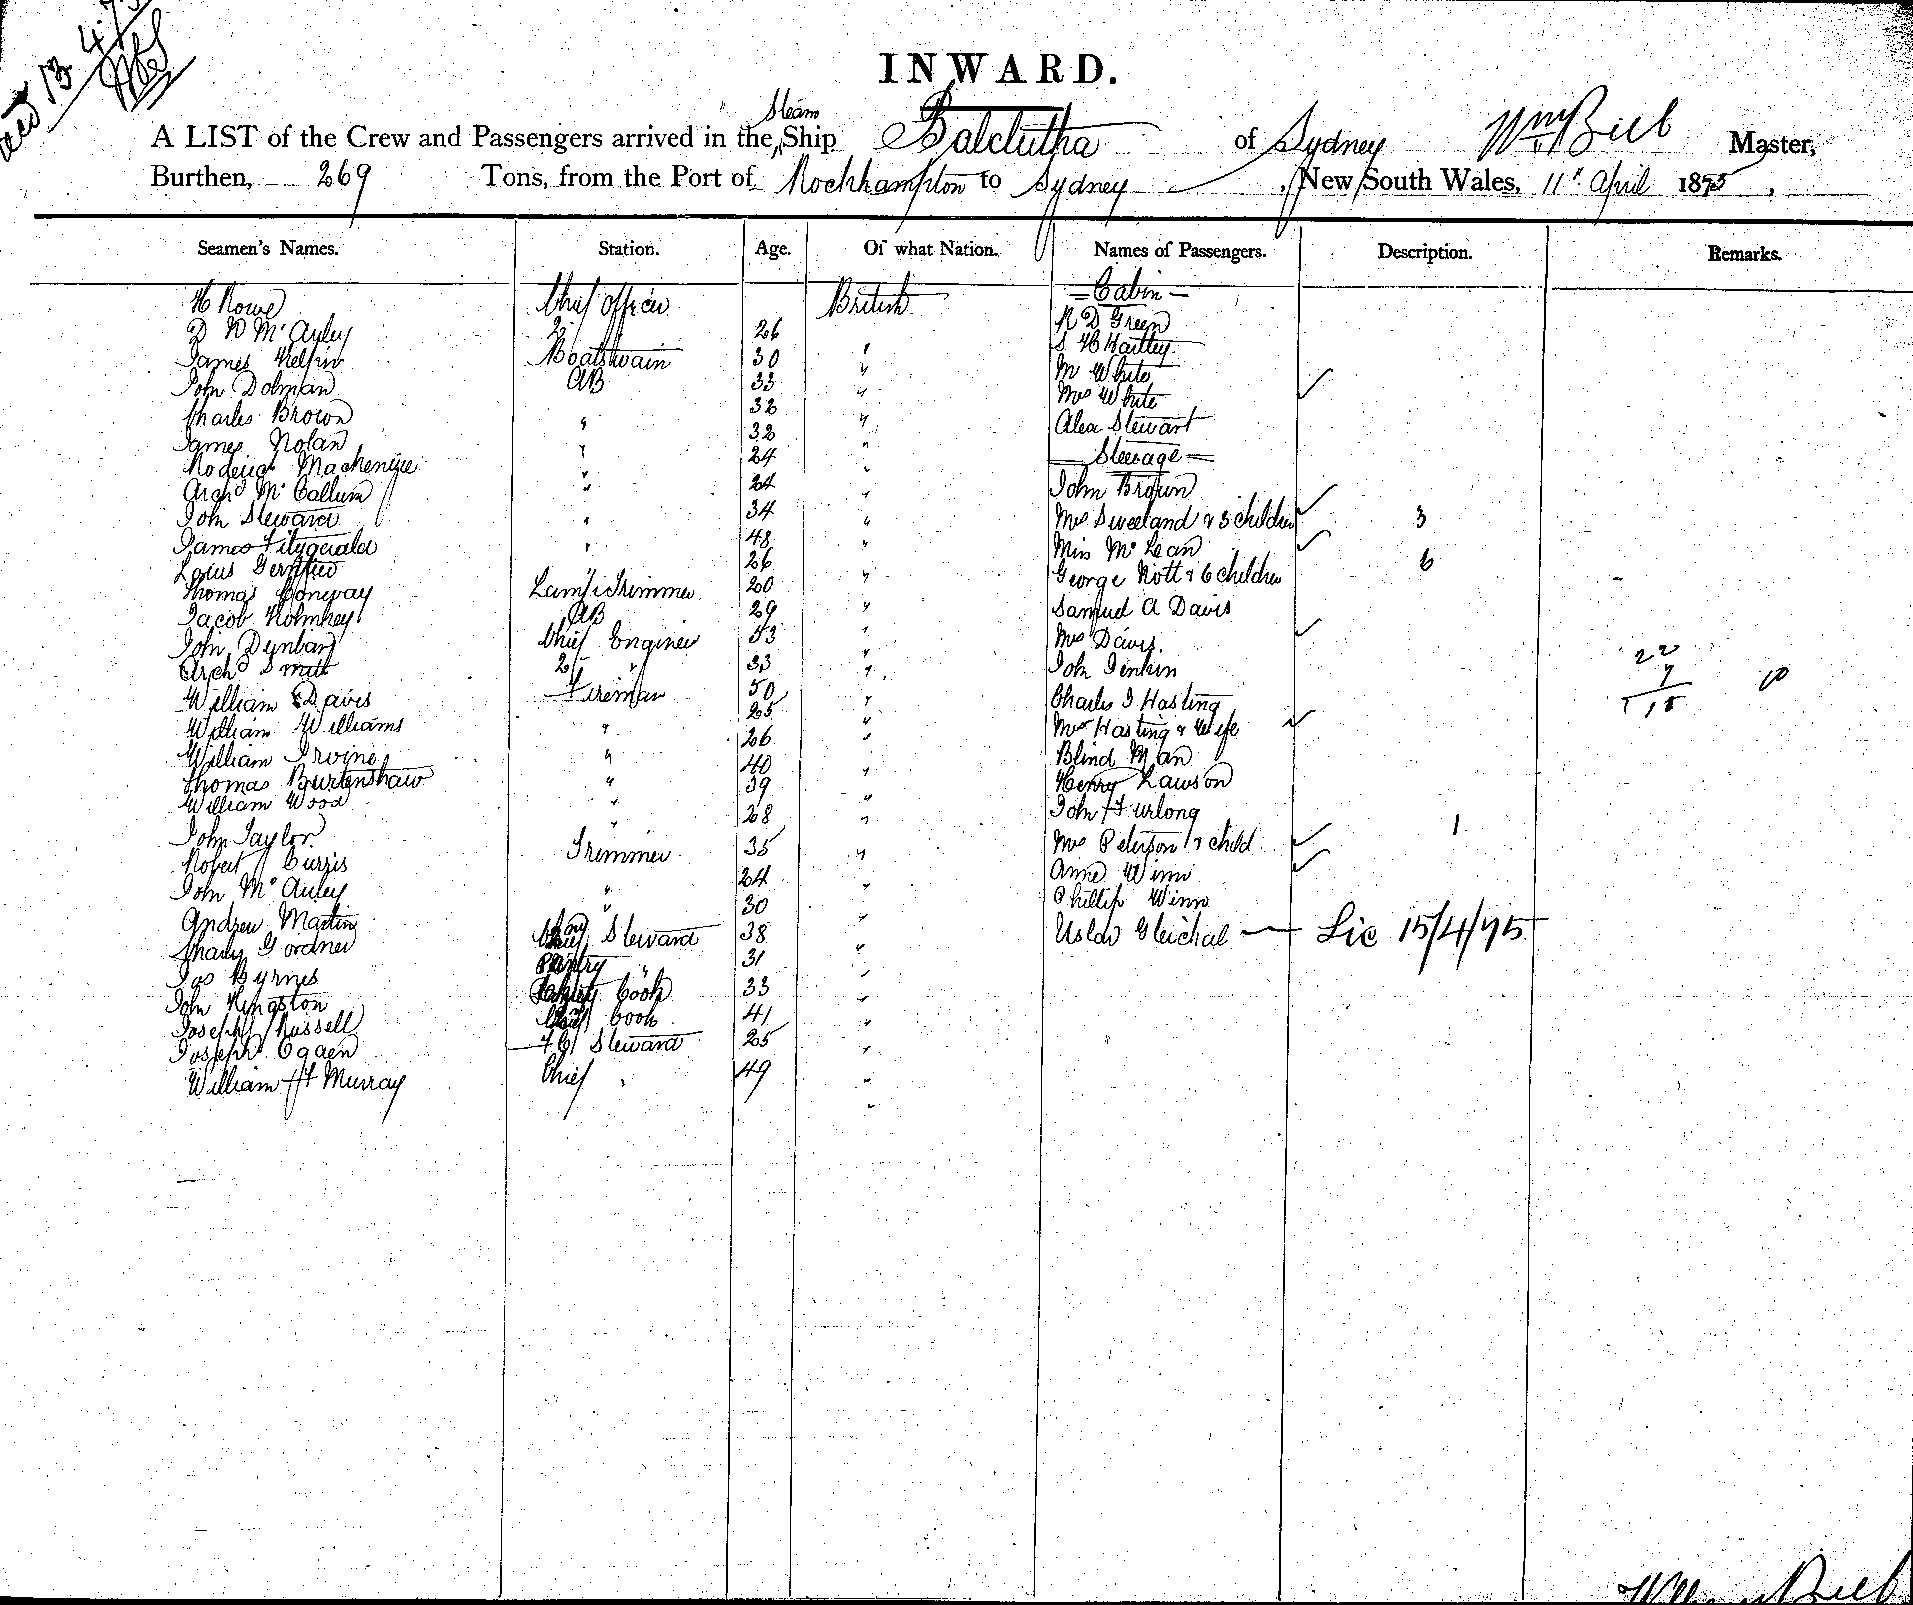 13 4/75
INWARD.
A LIST of the Crew and Passengers arrived in the Steam Ship Balclutha of Sydney Wm Beeb Master,
Burthen, 269 Tons, from the Port of Rockhampton to Sydney, New South Wales, 11th April 1875,
Seamen's Names. Station. Age. Of what Nation. Names of Passengers. Description. Remarks.
H Rowe Chief Officer British — Cabin —
D D McAuley 2 " 26 R D Green
James Kelfin Boatswain 30 " S H Hartley
John Dolman AB 33 " M White
Charles Brown " 32 " Mrs White
James Nolan " 32 " Alex Stewart
Roderick Mackenzie " 24 " — Steerage —
Archd McCallum " 24 " John Brown
John Steward " 34 " Mrs Sweeland & 3 children 3
James Fitzgerald " 48 " Miss McLean
Louis 26 " George Nott & 6 children 6
Thomas Conway Lamp Trimmer 20 " Samuel A Davis
Jacob Holmkey AB 29 " Mrs Davis.
John Dunbar Chief Engineer 53 " John Jenkin
Archd Smith 2 " 33 " Charles J Hasting
William E Davis Fireman 50 " Mr Hasting & Wife
William Williams " 25 " Blind Man
William Irvine " 26 " Henry Lawson
Thomas Burtenshaw " 40 " John H Furlong
William Wood " 39 " Mrs Peterson & child 1
John Taylor " 28 " Anne Winn
Robert J Curzis Trimmer 35 " Phillip Winn
John McAuley " 24 " Usldo Gleichal — Lic 15/4/75
Andrew Martin " 30 "
Charles Gordner Steward 38 "
Jas Byrnes Pantry " 31 "
John Kingston Cook 33 "
Joseph Russell Cook 41 "
Joseph Ogaen F C Steward 25 "
William H Murray Chief " 49 "
22
7
15
10
William Beeb